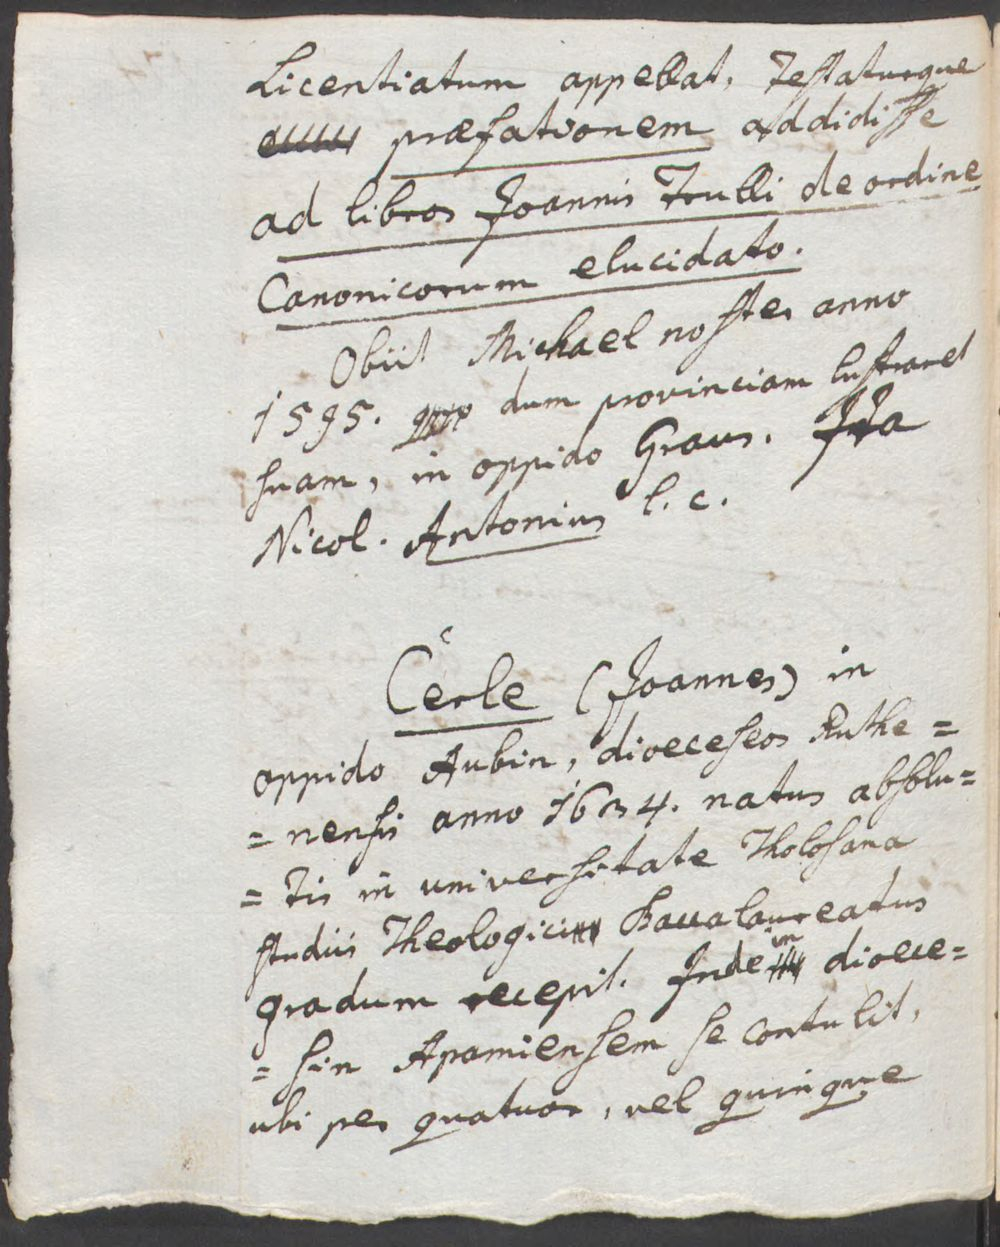 Licentiatum appellat, Testaturque
præfationem addidisse
ad libros Joannis Trulli de ordine
Canonicorum elucidato.
Obiit Michael noster anno
1595. dum provinciam lustraret
suam, in oppido Graus. Ita
Nicol. Antonius l. c.
Cerle (Joannes) in
oppido Aubin, dioeceseos Ruthe=
=nensis anno 1634. natus absolu=
=tis in universitate Tholosana
studiis Theologicis Baccalaureatus
gradum recepit. Inde in dioece=
=sin Apamiensem se contulit,
ubi per quatuor, vel quinque